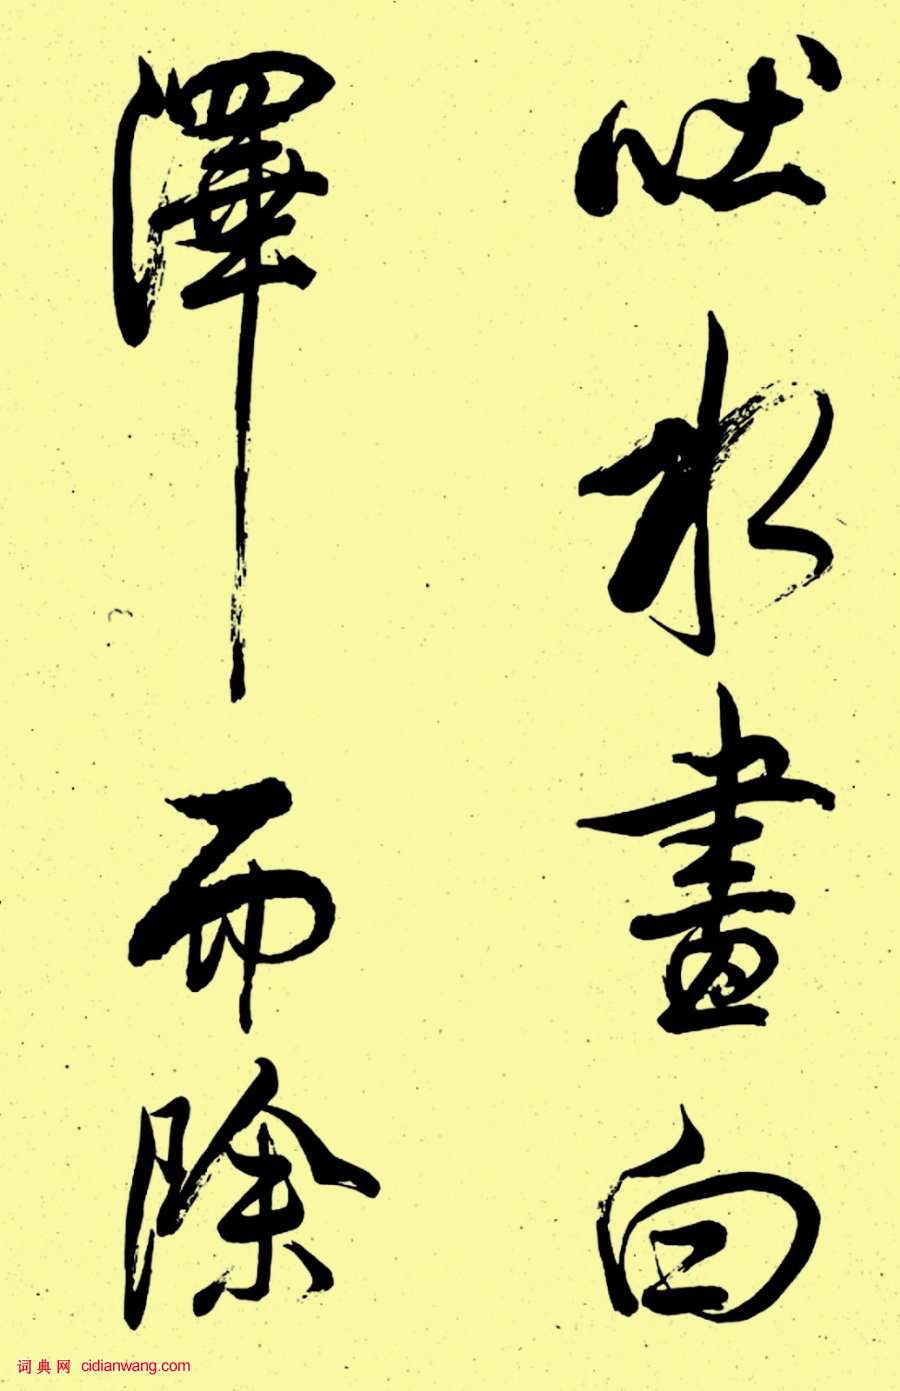 吠水畫白
澤而除
词典网 cidianwang.com